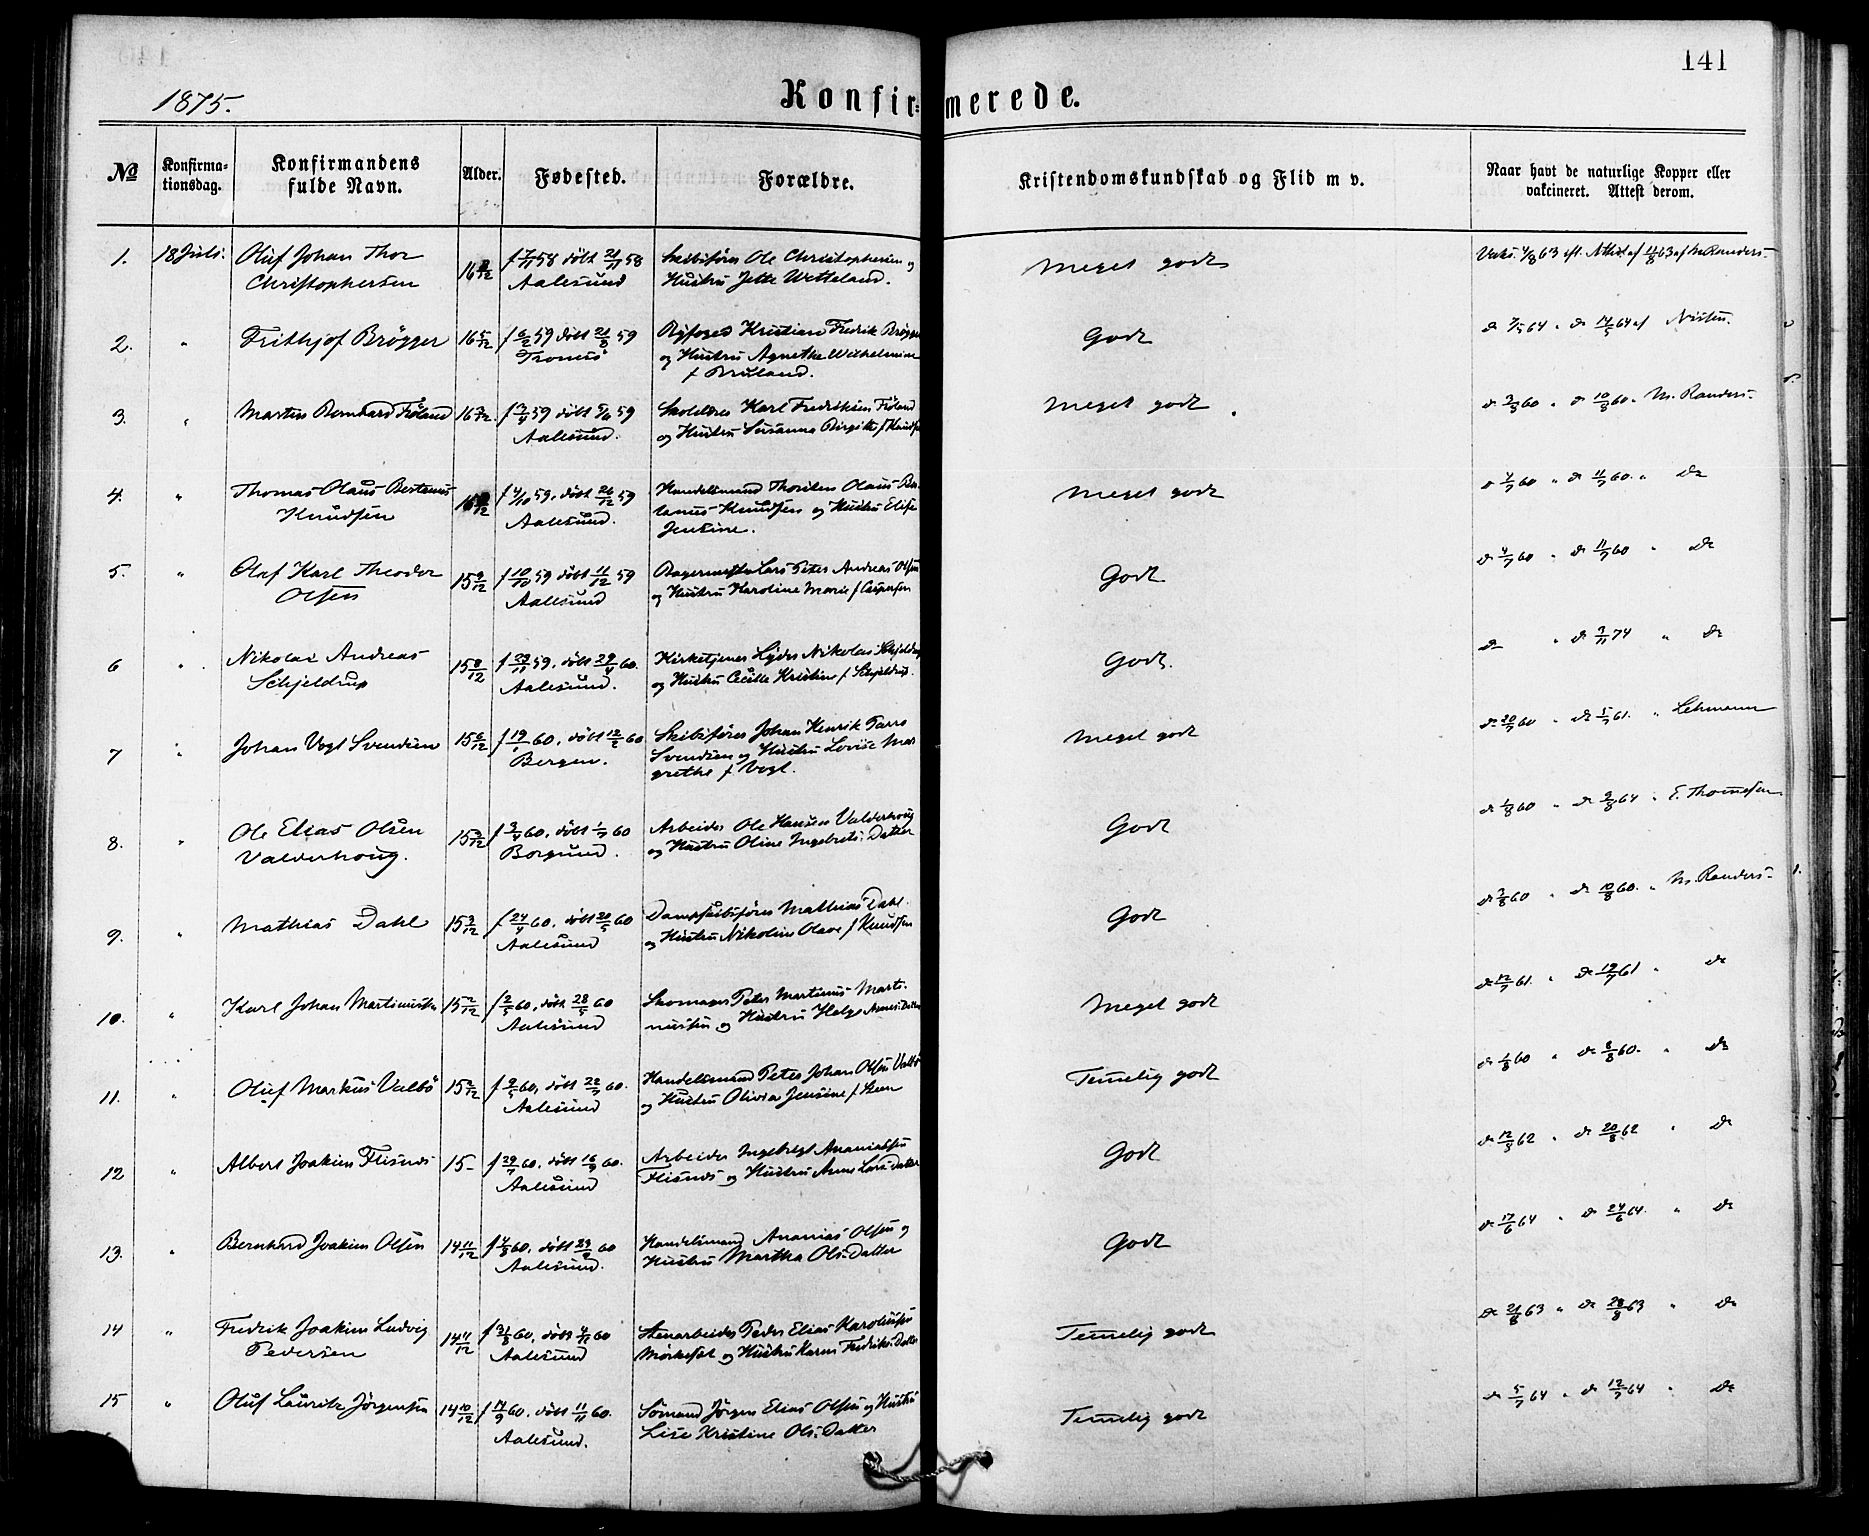 141
1875.
Konfirmerede.
No
Konfirma-
tionsdag.
Konfirmandens
fulde Navn.
Alder.
Fødested.
Forældre.
Kristendomskundskab og Flid m v.
Naar havt de naturlige Kopper eller
vakcineret. Attest derom.
1. 18 Juli. Oluf Johan Thor 16 8/12 f 7/11 58 døbt 21/11 58 Skibsfører Ole Christophersen og Meget godt
Christophersen Aalesund Hustru Jette Wetteland.
2. " Frithjof Brögger 16 5/12 f 6/2 59 døbt 21/8 59 Byfoged Kristian Fredrik Brögger Godt
Tromsö og Hustru Agnethe Wilhelmine
f Bruland.
3. " Martin Bernhard Fröland 16 døbt 59 Karl Fredriksen Fröland Meget godt
Aalesund. og Hustru Susanna Birgitte f
4. " Thomas Olaus Bertinus f 4/10 59, døbt 26/12 59 Handelsmand Thorsten Olaus Meget godt
Knudsen Aalesund. Knudsen og Hustru Elise
Jensine.
5. " Olaf Karl Theodor 15 9/12 f 10/10 59 døbt 11/12 59 Bagermester Lars Peter Andreas Olsen Godt
Olsen Aalesund og Hustru Karoline Marie f Caspersen
6 " Nikolai Andreas 15 8/12 f 59, døbt 29/4 60. Kirketjener Lyder Nikolai Schjeldrup Godt.
Schjeldrup Aalesund. og Hustru Cecilie Kristine f Schjeldrup.
7 " Johan Vogt Svendsen 15 6/12 f 19/1 60, døbt 12/2 60 Skibsfører Johan Henrik Meget godt
Bergen. Svendsen og Hustru Lovise Mar
grethe f Vogt.
8. " Ole Elias Olsen 15 3/12 f 3/4 60, døbt 1/7 60 Arbeider Ole Hansen Valderhoug Godt
Valderhoug. Borgund. og Hustru Oline Ingebrets: Datter
9. " Mathias Dahl 15 3/12 f 24/4 60, døbt 20/5 60 Dampskibsfører Mathias Dahl Godt
Aalesund og Hustru Nikoline Olave f Knudsen
10. " Karl Johan Martinussen 15 2/12 f 2/5 60, døbt 28/5 60 Skomager Peter Martinus Marti- Meget godt
Aalesund nussen og Hustru Helge Datter
11. " Oluf Markus Valbö 15 2/12 60, døbt 22/7 60. Handelsmand Peter Johan Olsen Valbö Temelig godt
Aalesund og Hustru Olivia Jensine f Steen
12 " Albert Joakim Flisnes 15 - f 29/7 60, døbt 16/9 60. Arbeider Ingebrigt Ananiassen Godt
Aalesund Flisnes og Hustru Anne Lars Datter
13. " Bernhard Joakim Olsen 14 11/12 f 4/8 60, døbt 60 Handelsmand Ananias Olsen og Godt
Aalesund. Hustru Martha Ols: Datter
14 " Fredrik Joakim Ludvig 14 11/12 f 31/8 60, døbt 4/11 60 Stenarbeider Peder Elias Karolussen Temelig godt
Pedersen Aalesund og Hustru Karen Fredriks: Datter
15 " Oluf Lauritz Jörgensen 14 10/12 f 14/9 60. døbt 11/11 60. Sömand Jörgen Elias Olsen og Hustru Temelig godt
Aalesund. Lise Kristine Ols: Datter
Vaks. 4/8 63 11/8 63 af M. Randers.
do 7/5 64 " do 14/5 64 af
do 3/8 60 " do 10/8 60 " M. Randers.
do 4/7 60 " do 11/7 60 " do
do 4/7 60 " do 11/7 60 " do
do " do 74 " do
do 60 " do 61. " Lehmann
do 1/8 60 " do 64 " E. Thomesen
do 3/8 60 " do 10/8 60. " M. Randers.
do 12/7 61. " do 19/7 61 " do
do 1/8 60 " do 8/8 60. " do
do 12/8 62 " do 20/8 62 " do
do 17/6 64 " do 24/6 64. " do
do 21/8 63 " do 28/8 63 " do
do 5/7 64 " do 12/7 64 " do